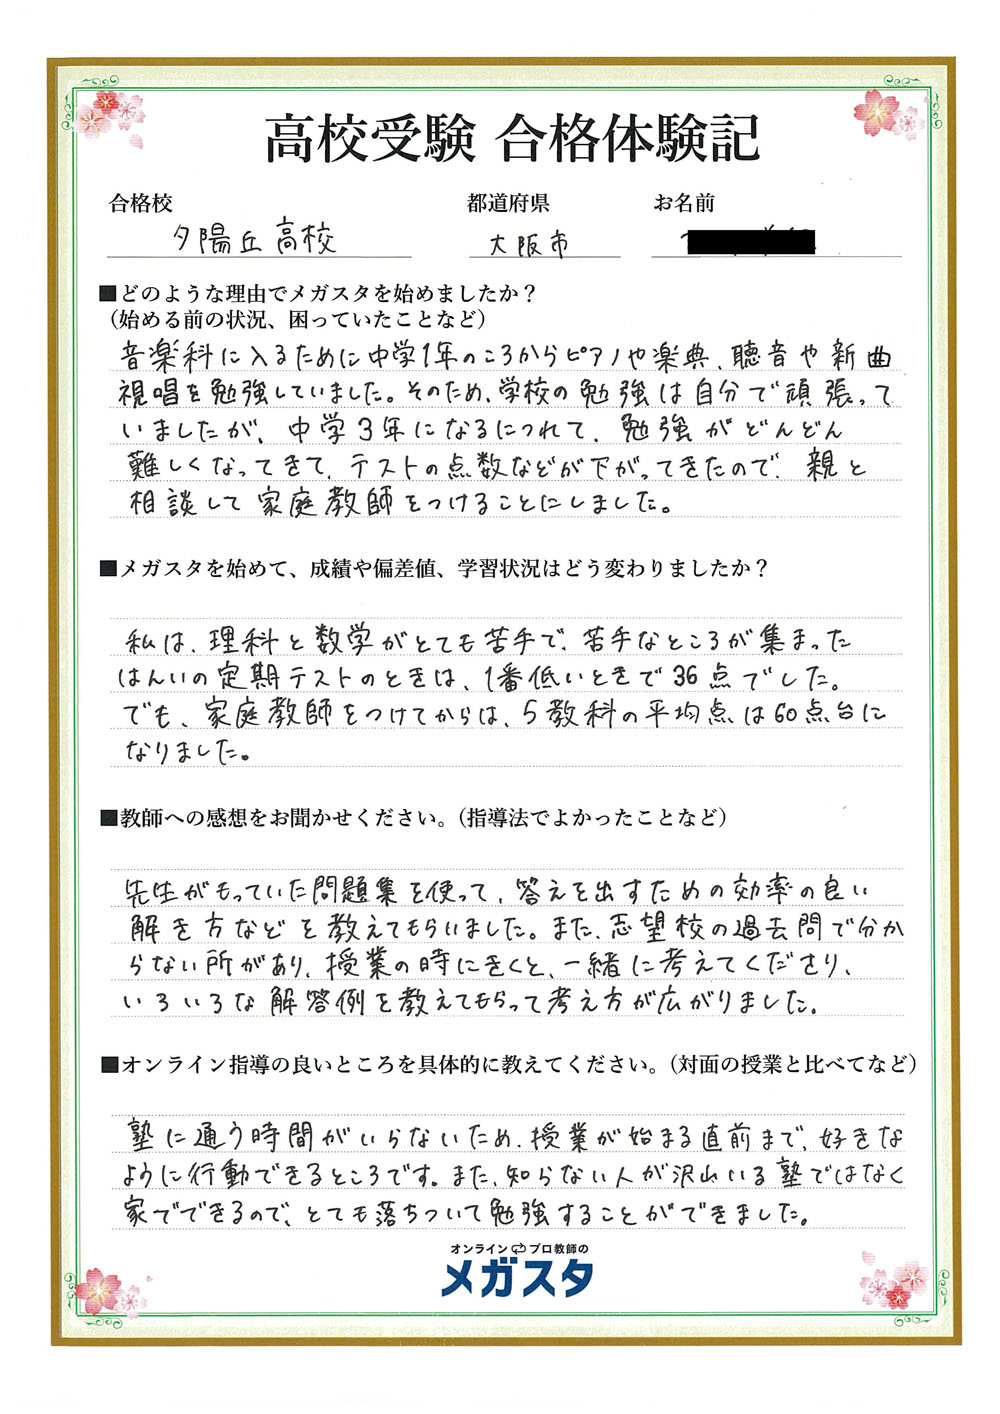 高校受験 合格体験記
合格校 都道府県 お名前
夕陽丘高校 大阪市
■どのような理由でメガスタを始めましたか？
（始める前の状況、困っていたことなど）
音楽科に入るために中学1年のころからピアノや楽典、聴音や新曲
視唱を勉強していました。そのため、学校の勉強は自分で頑張って
いましたが、中学3年になるにつれて、勉強がどんどん
難しくなってきて、テストの点数などが下がってきたので、親と
相談して家庭教師をつけることにしました。
■メガスタを始めて、成績や偏差値、学習状況はどう変わりましたか？
私は、理科と数学がとても苦手で、苦手なところが集まった
はんいの定期テストのときは、1番低いときで36点でした。
でも、家庭教師をつけてからは、5教科の平均点は60点台に
なりました。
■教師への感想をお聞かせください。（指導法でよかったことなど）
先生がもっていた問題集を使って、答えを出すための効率の良い
解き方などを教えてもらいました。また、志望校の過去問で分か
らない所があり、授業の時にきくと、一緒に考えてくださり、
いろいろな解答例を教えてもらって考え方が広がりました。
■オンライン指導の良いところを具体的に教えてください。（対面の授業と比べてなど）
塾に通う時間がいらないため、授業が始まる直前まで、好きな
ように行動できるところです。また、知らない人が沢山いる塾ではなく
家でできるので、とても落ちついて勉強することができました。
オンライン プロ教師の
メガスタ